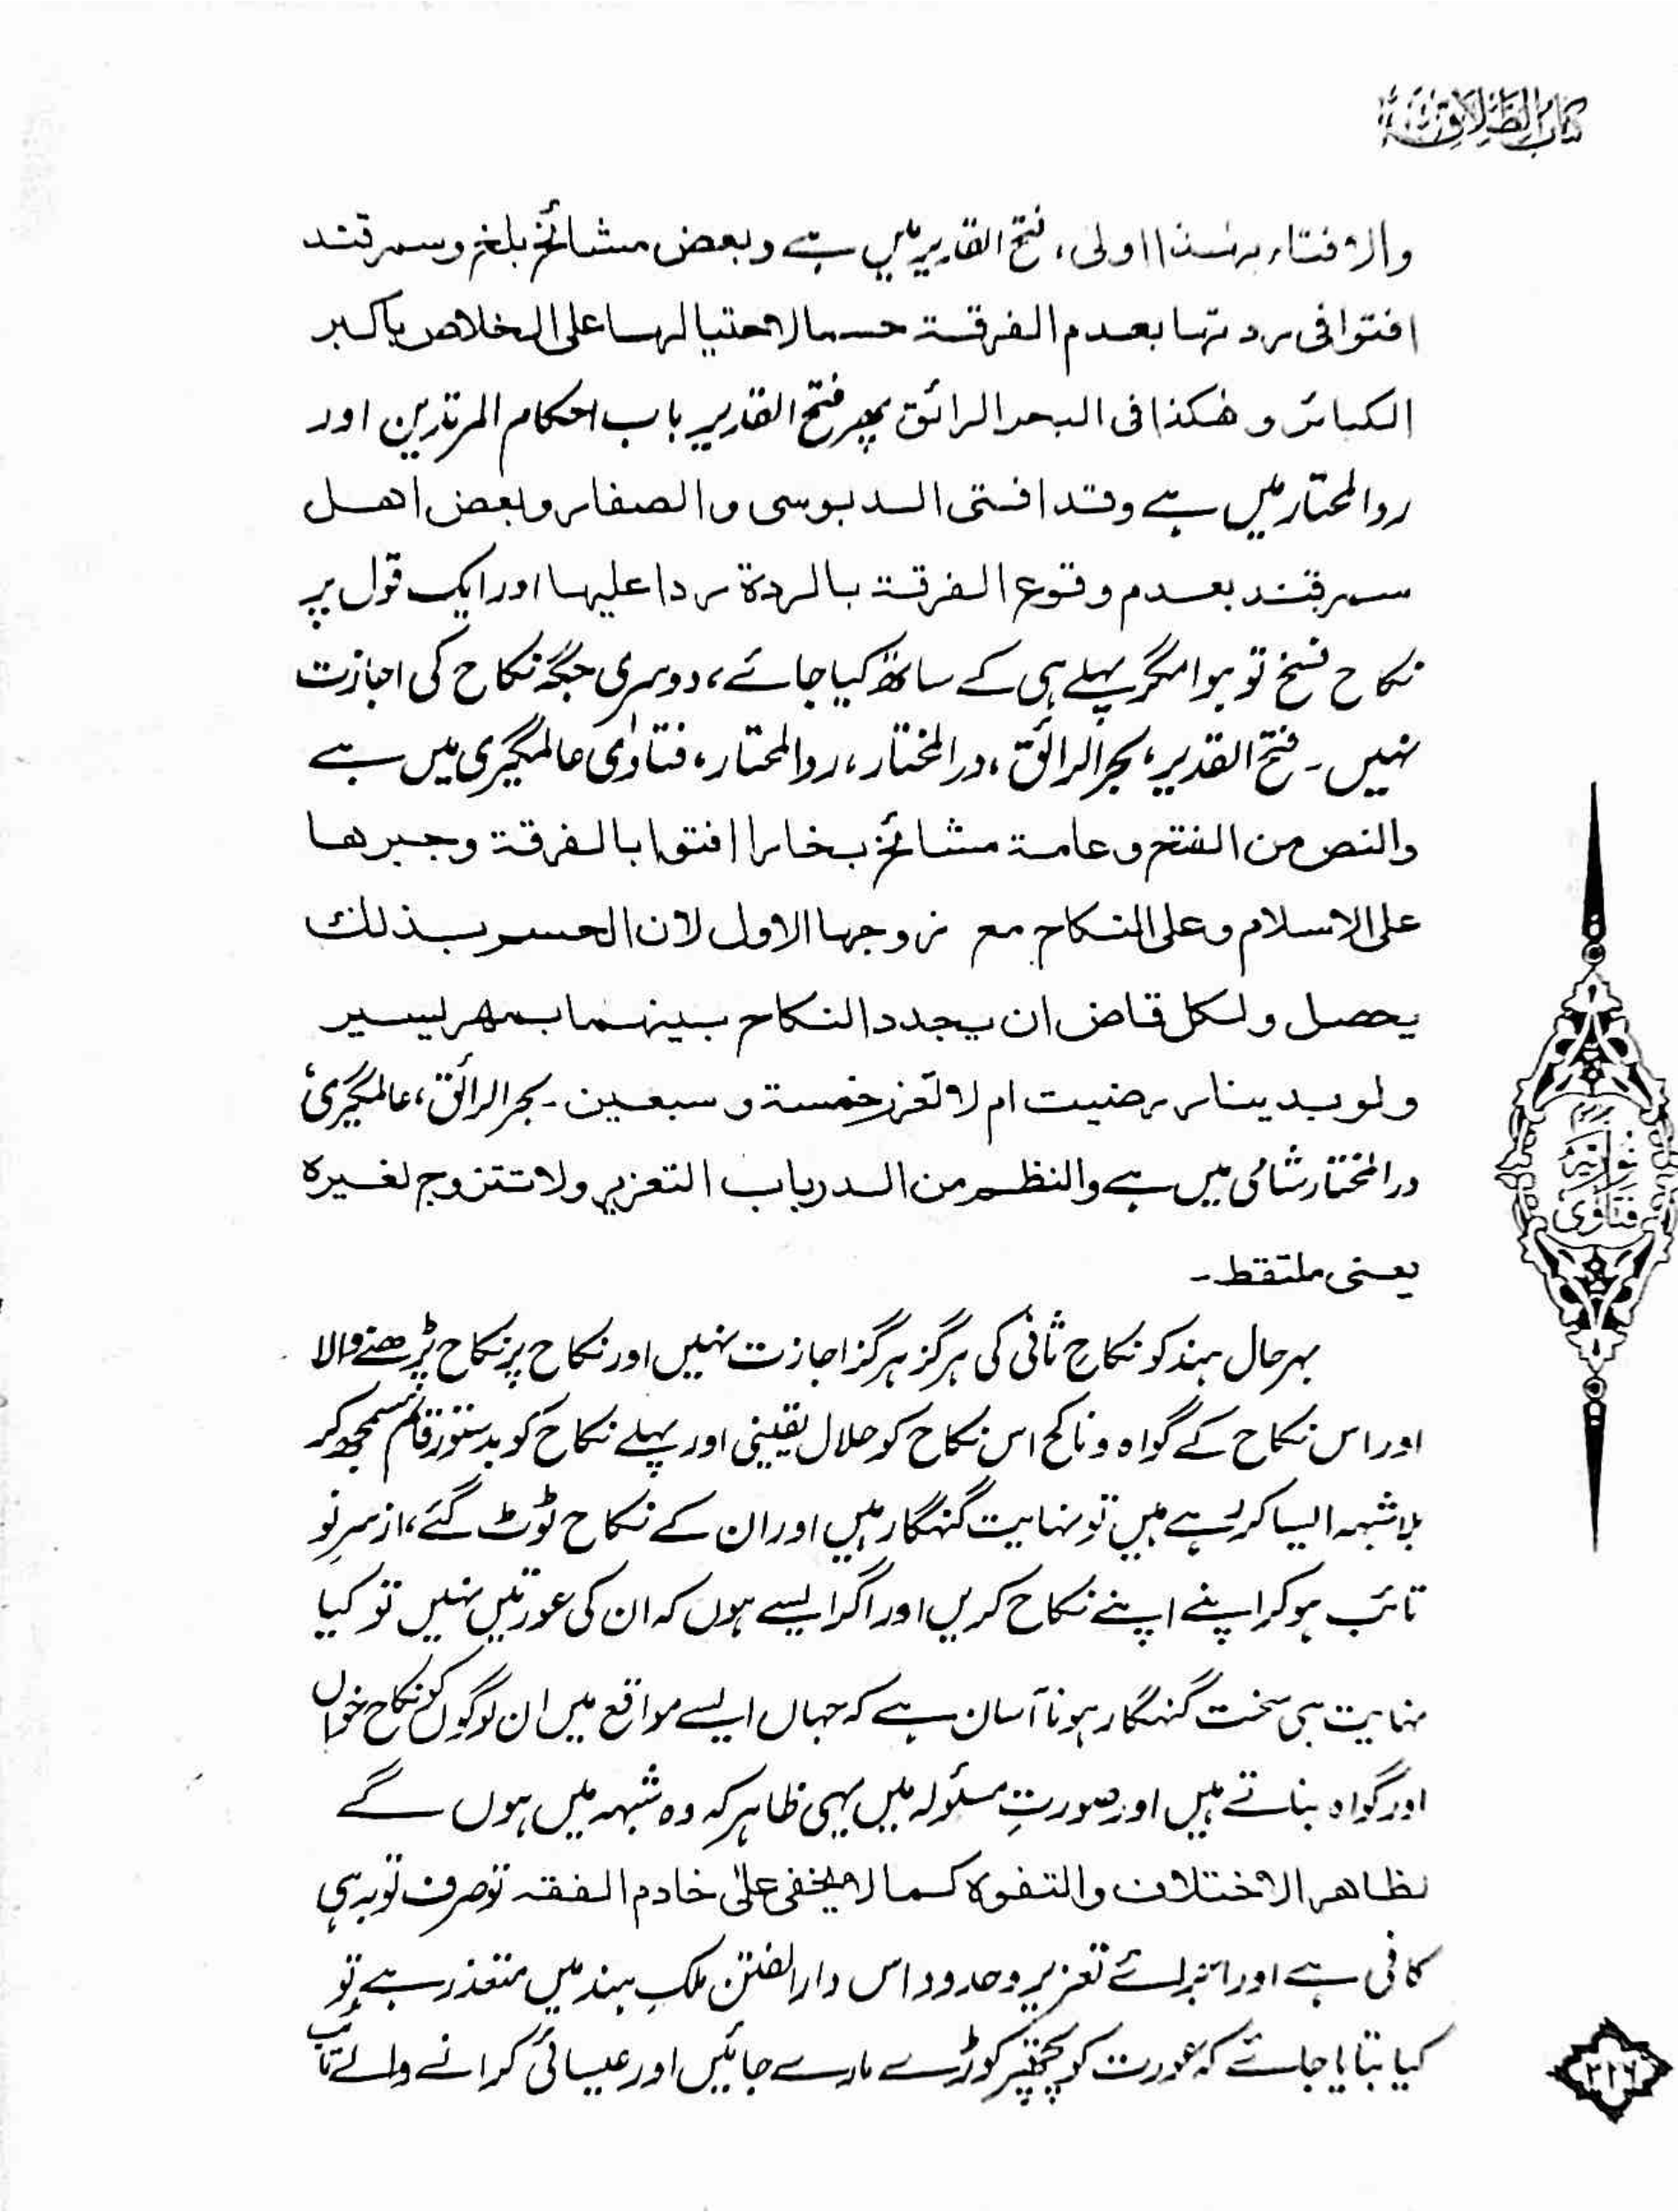 کتاب الطلاق
والافتاء بہٰذا اولی، فتح القدیر میں ہے وبعض مشائخ بلخ وسمرقند
افتوا فی ردتہا بعدم الفرقۃ حسما لاحتیالہا علی الخلاص باکبر
الکبائر و ھٰکذا فی البحر الرائق پھر فتح القدیر باب احکام المرتدین اور
ردالمحتار میں ہے وقد افتی الدبوسی والصفار وبعض اھل
سمرقند بعدم وقوع الفرقۃ بالردۃ ردا علیہا اور ایک قول پر
نکاح فسخ تو ہوا مگر پہلے ہی کے ساتھ کیا جائے، دوسری جگہ نکاح کی اجازت
نہیں۔ فتح القدیر، بحرالرائق، درالمختار، ردالمحتار، فتاوٰی عالمگیری میں ہے
والنص من الفتح وعامۃ مشائخ بخارا افتوا بالفرقۃ وجبرھا
علی الاسلام وعلی النکاح مع زوجہا الاول لان الحسم بذلک
یحصل ولکل قاض ان یجدد النکاح بینہما بمھر یسیر
ولو بدینار رضیت ام لا تعزر خمسۃ و سبعین۔ بحرالرائق، عالمگیری،
درالمختار شامی میں ہے والنظم من الدر باب التعزیر ولا تتزوج لغیرہ
یعنی ملتقط۔
بہرحال ہند کو نکاحِ ثانی کی ہرگز ہرگز اجازت نہیں اور نکاح پر نکاح پڑھنے والا
اور اس نکاح کے گواہ و ناکح اس نکاح کو حلال یقینی اور پہلے نکاح کو بدستور قائم سمجھ کر
بلاشبہہ ایسا کر رہے ہیں تو نہایت گنہگار ہیں اور ان کے نکاح ٹوٹ گئے، ازسرِنو
تائب ہو کر اپنے اپنے نکاح کریں اور اگر ایسے ہوں کہ ان کی عورتیں نہیں تو کیا
نہایت ہی سخت گنہگار ہونا آسان ہے کہ جہاں ایسے مواقع میں ان لوگوں کو نکاح خواں
اور گواہ بناتے ہیں اور صورتِ مسئولہ میں یہی ظاہر کہ وہ شبہہ میں ہوں گے
لظاھر الاختلاف والتفوہ کما لا یخفی علیٰ خادم الفقہ تو صرف توبہ ہی
کافی ہے اور اجرائے تعزیر وحدود اس دارالفتن ملکِ ہند میں متعذر ہے تو
کیا بتایا جائے کہ عورت کو پچھتر کوڑے مارے جائیں اور عیسائی کرانے والے تائب
نوریہ
فتاوٰی
۳۲۶